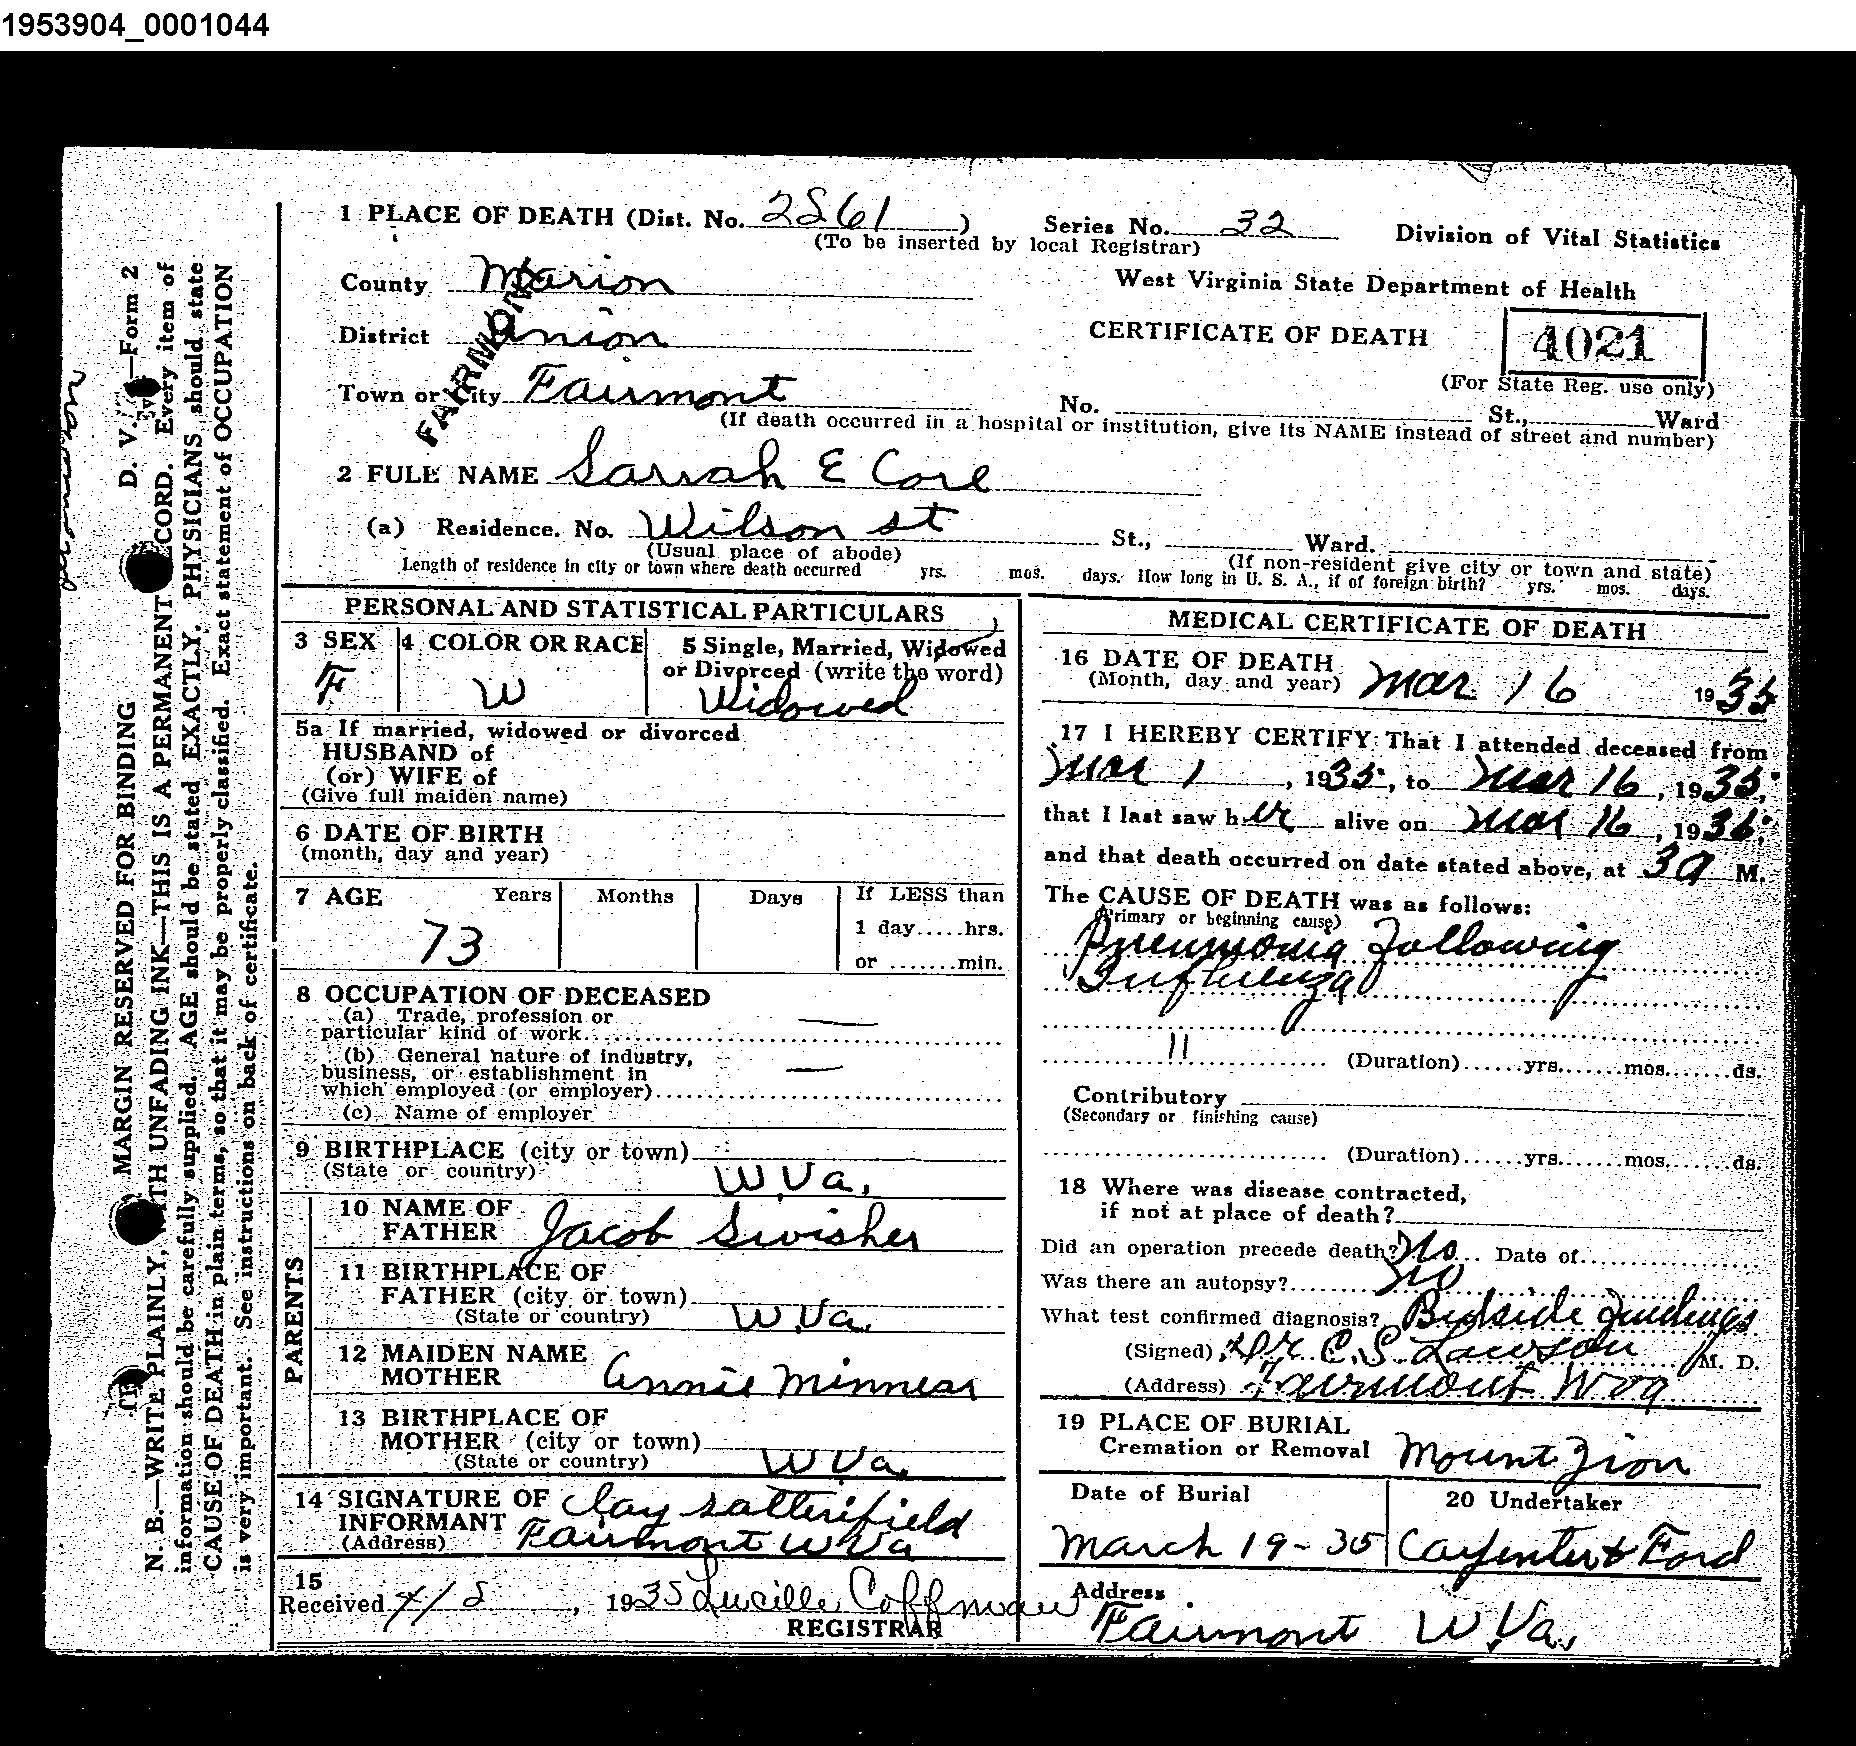 1953904_0001044
1 PLACE OF DEATH (Dist. No. 2861 )
(To be inserted by local Registrar)
Series No. 32
Division of Vital Statistics
County Marion
West Virginia State Department of Health
District Union
CERTIFICATE OF DEATH
4021
(For State Reg. use only)
FAIRMONT
Town or City Fairmont
No. St., Ward
(If death occurred in a hospital or institution, give its NAME instead of street and number)
2 FULL NAME Sarrah E Core
(a) Residence. No. Wilson st St., Ward.
(Usual place of abode)
(If non-resident give city or town and state)
Length of residence in city or town where death occurred yrs. mos. days. How long in U. S. A., if of foreign birth? yrs. mos. days.
PERSONAL AND STATISTICAL PARTICULARS
3 SEX
F
4 COLOR OR RACE
W
5 Single, Married, Widowed
or Divorced (write the word)
Widowed
5a If married, widowed or divorced
HUSBAND of
(or) WIFE of
(Give full maiden name)
6 DATE OF BIRTH
(month, day and year)
7 AGE Years Months Days If LESS than
73
1 day.....hrs.
or .......min.
8 OCCUPATION OF DECEASED
(a) Trade, profession or
particular kind of work
(b) General nature of industry,
business, or establishment in
which employed (or employer)
(c) Name of employer
9 BIRTHPLACE (city or town)
(State or country) W.Va.
PARENTS
10 NAME OF
FATHER Jacob Swisher
11 BIRTHPLACE OF
FATHER (city or town)
(State or country) W.Va.
12 MAIDEN NAME
MOTHER Annie Minnear
13 BIRTHPLACE OF
MOTHER (city or town)
(State or country) W.Va.
14 SIGNATURE OF
INFORMANT Clay Satterfield
(Address) Fairmont W Va
15
Received 4/5, 1935 Lucille Coffman
REGISTRAR
MEDICAL CERTIFICATE OF DEATH
16 DATE OF DEATH
(Month, day and year) Mar 16 1935
17 I HEREBY CERTIFY That I attended deceased from
Mar 1, 1935, to Mar 16, 1935,
that I last saw her alive on Mar 16, 1935,
and that death occurred on date stated above, at 3 a M.
The CAUSE OF DEATH was as follows:
(Primary or beginning cause)
Pneumonia Following
Influenza
11 (Duration)......yrs.......mos.......ds.
Contributory
(Secondary or finishing cause)
(Duration)......yrs.......mos.......ds.
18 Where was disease contracted,
if not at place of death?
Did an operation precede death? No Date of
Was there an autopsy? No
What test confirmed diagnosis? Bedside Findings
(Signed) Dr C. S. Lawson M. D.
(Address) Fairmont W Va
19 PLACE OF BURIAL
Cremation or Removal Mount Zion
Date of Burial
March 19-35
20 Undertaker
Carpenter & Ford
Address
Fairmont W.Va.
D. V. —Form 2
MARGIN RESERVED FOR BINDING
N. B.—WRITE PLAINLY, WITH UNFADING INK—THIS IS A PERMANENT RECORD. Every item of
information should be carefully supplied. AGE should be stated EXACTLY. PHYSICIANS should state
CAUSE OF DEATH in plain terms, so that it may be properly classified. Exact statement of OCCUPATION
is very important. See instructions on back of certificate.